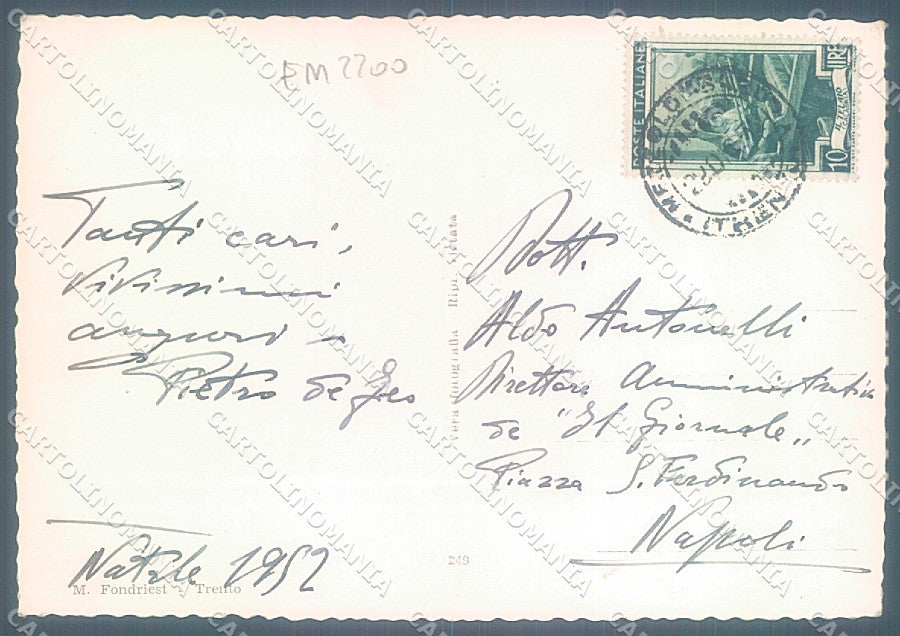 EM2200
POSTE ITALIANE
LIRE
10
MEZZOLOMBARDO
TRENTO
Tanti cari,
vivissimi
auguri
Pietro de
Natale 1952
M. Fondriest - Trento
Vera fotografia Ripr. vietata
249
Dott.
Aldo Antonelli
Direttore Amministrativo
de "Il Giornale"
Piazza S. Ferdinando
Napoli
CARTOLINOMANIA